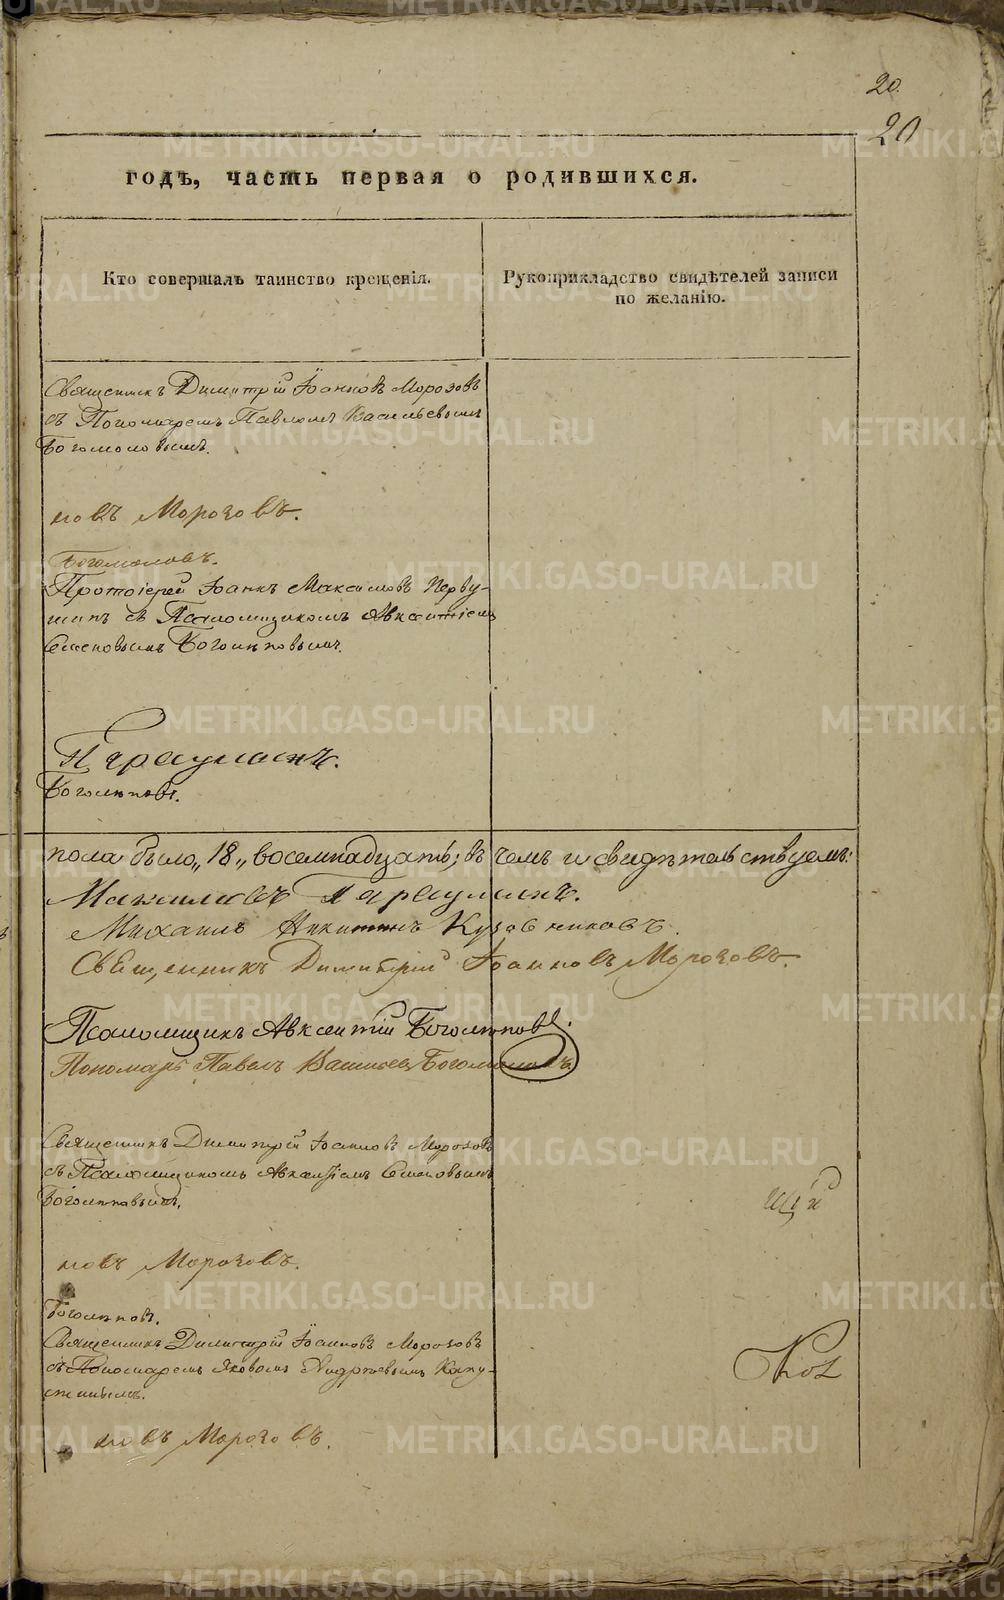 20.
20
годъ, часть первая о родившихся.
Кто совершалъ таинство крещенія.
Рукоприкладство свидѣтелей записи
по желанію.
Священникъ Димитрій Іоанновъ Морозовъ
съ Пономаремъ Павломъ Васильевымъ
Богомоловымъ.
новъ Морозовъ.
Богомоловъ.
Протоіерей Іоаннъ Максимовъ Перву-
шинъ съ Псаломщикомъ Авксентіемъ
Семеновымъ Боголѣповымъ.
Первушинъ.
Боголѣповъ.
пола было „18„ восемнадцать; въ чемъ и свидѣтельствуемъ:
Максимовъ Первушинъ.
Михаилъ Никитинъ Кузовниковъ.
Священникъ Димитрій Іоанновъ Морозовъ.
Псаломщикъ Авксентій Боголѣповъ.
Пономарь Павелъ Васильевъ Богомоловъ
Священникъ Димитрій Іоанновъ Морозовъ
съ Псаломщикомъ Авксентіемъ Семеновымъ
Боголѣповымъ.
новъ Морозовъ.
Боголѣповъ.
Священникъ Димитрій Іоанновъ Морозовъ
съ Пономаремъ Яковомъ Андреевымъ Капу-
стинымъ.
новъ Морозовъ.
METRIKI.GASO-URAL.RU